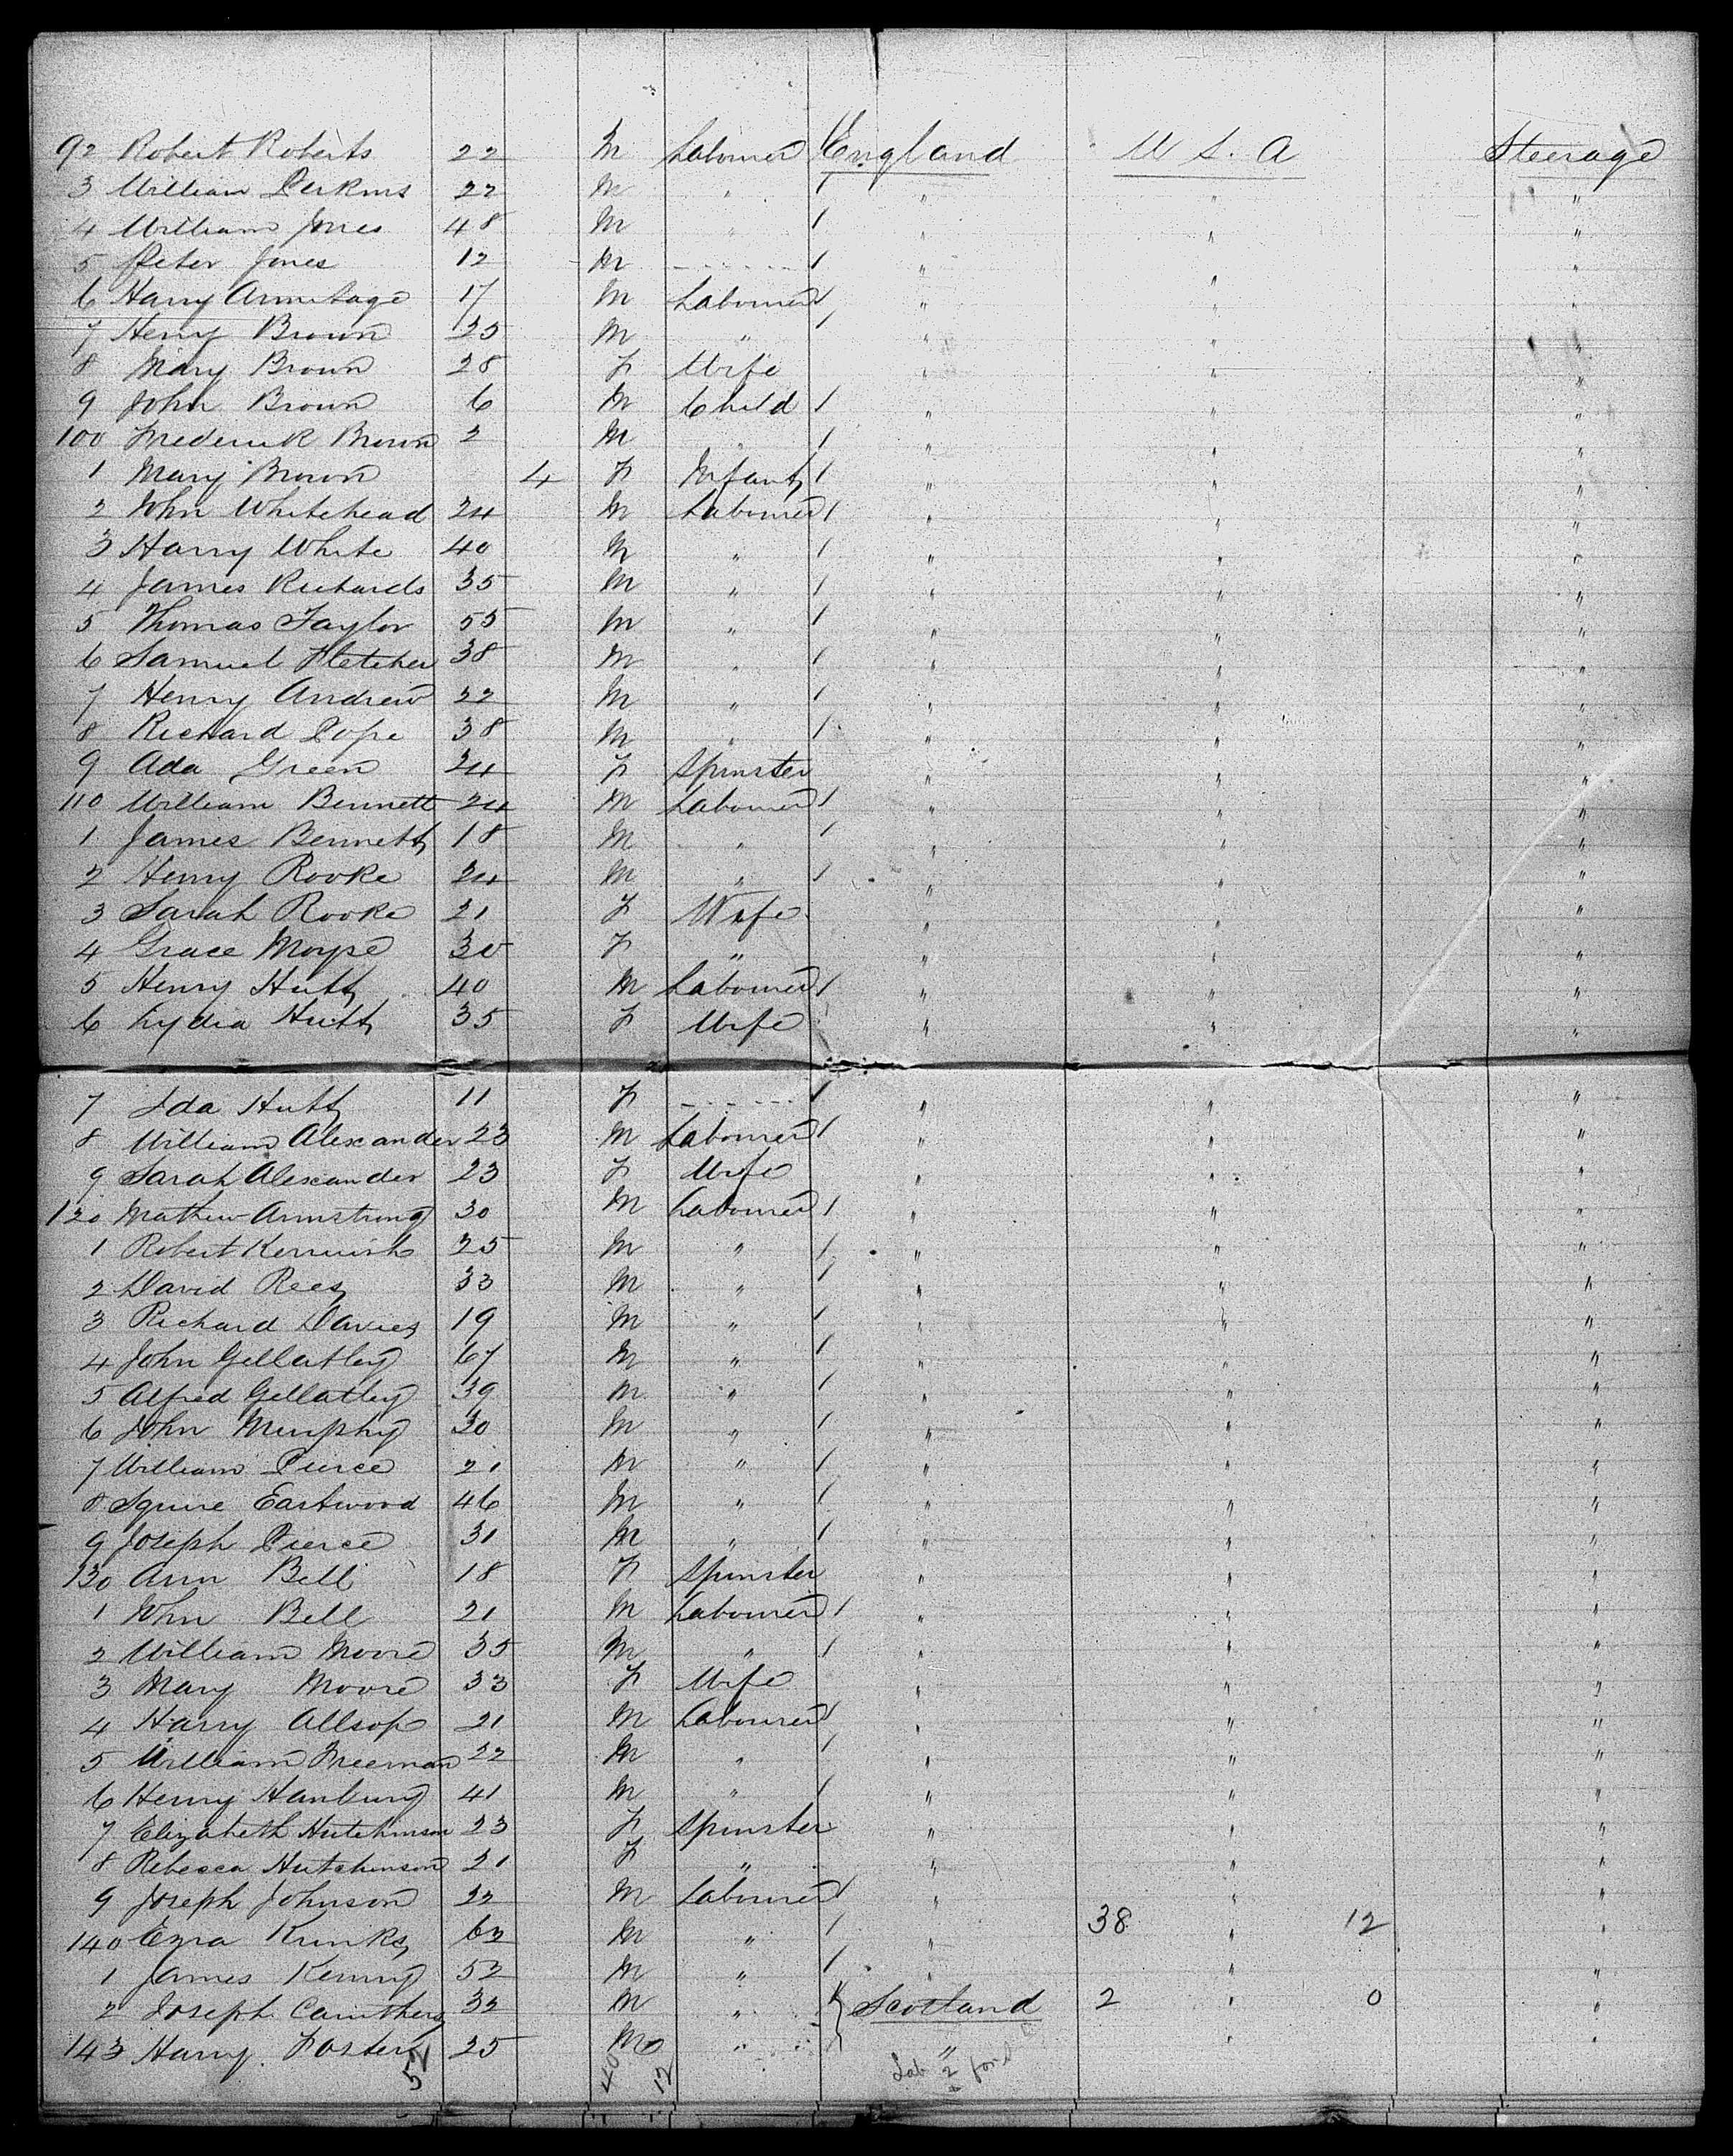 92 Robert Roberts 22 M Labourer England U S. A Steerage
3 William Perkins 22 M " " " "
4 William Jones 48 M " " " "
5 Peter Jones 12 M - - - - - - " " "
6 Harry Armitage 17 M Labourer " " "
7 Henry Brown 25 M " " " "
8 Mary Brown 28 F Wife " " "
9 John Brown 6 M Child " " "
100 Frederick Brown 2 M " " " "
1 Mary Brown 4 F Infant " " "
2 John Whitehead 24 M Labourer " " "
3 Harry White 40 M " " " "
4 James Richards 35 M " " " "
5 Thomas Taylor 55 M " " " "
6 Samuel Fletcher 38 M " " " "
7 Henry Andrew 22 M " " " "
8 Richard Pope 38 M " " " "
9 Ada Green 24 F Spinster " " "
110 William Bennett 24 M Labourer " " "
1 James Bennett 18 M " " " "
2 Henry Rooke 24 M " " " "
3 Sarah Rooke 21 F Wife " " "
4 Grace Moyse 30 F " " " "
5 Henry Hutt 40 M Labourer " " "
6 Lydia Hutt 35 F Wife " " "
7 Ida Hutt 11 F - - - - - - " " "
8 William Alexander 23 M Labourer " " "
9 Sarah Alexander 23 F Wife " " "
120 Mathew Armstrong 30 M Labourer " " "
1 Robert Kerruish 25 M " " " "
2 David Rees 33 M " " " "
3 Richard Davies 19 M " " " "
4 John Gellatley 67 M " " " "
5 Alfred Gellatley 39 M " " " "
6 John Murphy 30 M " " " "
7 William Pierce 21 M " " " "
8 Squire Eastwood 46 M " " " "
9 Joseph Pierce 31 M " " " "
130 Ann Bell 18 F Spinster " " "
1 John Bell 21 M Labourer " " "
2 William Moore 35 M " " " "
3 Mary Moore 33 F Wife " " "
4 Harry Allsop 21 M Labourer " " "
5 William Freeman 22 M " " " "
6 Henry Hanbury 41 M " " " "
7 Elizabeth Hutchinson 23 F Spinster " " "
8 Rebecca Hutchinson 21 F " " " "
9 Joseph Johnson 22 M Labourer " " "
140 Ezra Kunks M " " 38 " 12 "
1 James Kenny 52 M " " " "
2 Joseph Caruthers 32 M " Scotland 2 " 0 "
143 Harry Foster 25 M " " " "
52 40 12 Lab 2